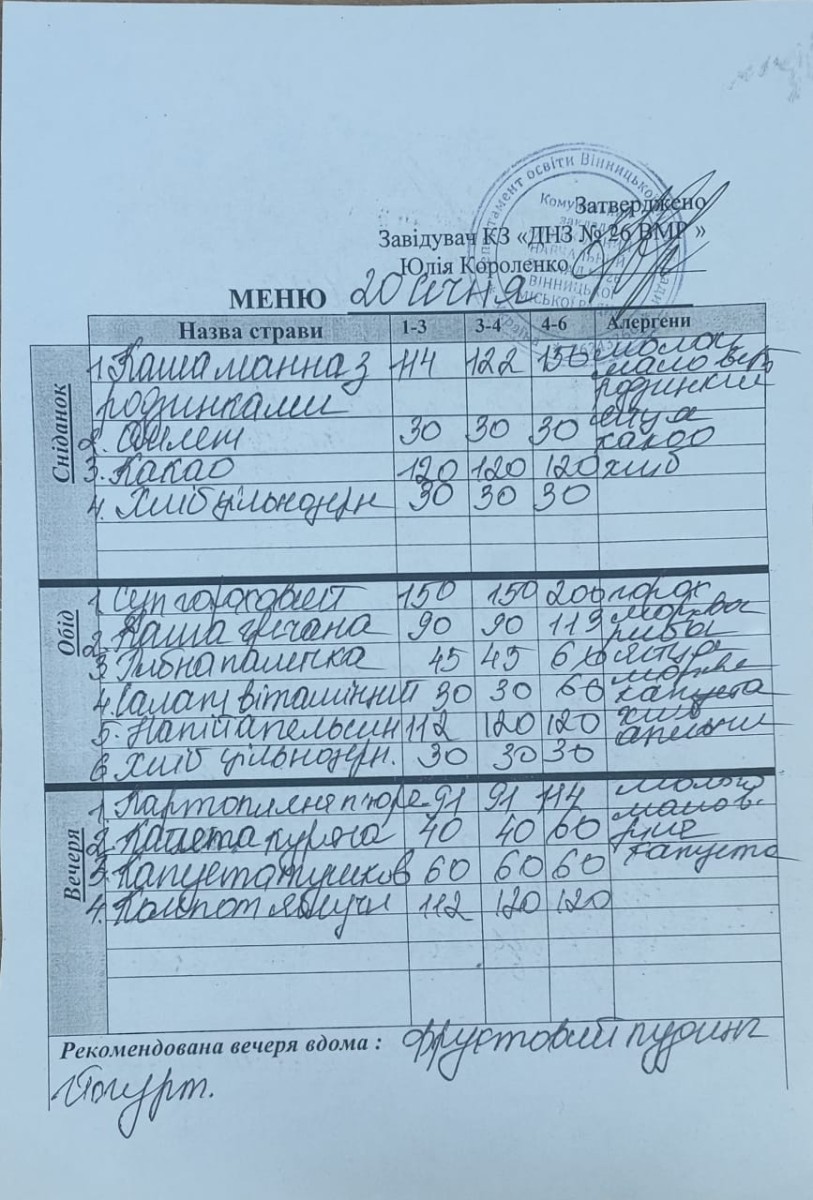 Затверджено
Завідувач КЗ «ДНЗ № 26 ВМР »
Юлія Короленко
МЕНЮ 20 січня
Назва страви 1-3 3-4 4-6 Алергени
Сніданок
1. Каша манна з 114 122 150 молоко
масло вер
родинками родзинки
яйця
2. Омлет 30 30 30 какао
3. Какао 120 120 120 хліб
4. Хліб цільнозерн 30 30 30
Обід
1. Суп гороховий 150 150 200 горох
2. Каша гречана 90 90 113 морква
риба
3. Рибна паличка 45 45 60 яйця
4. Салат вітамінний 30 30 60 морква
капуста
5. Напій апельсин 112 120 120 хліб
6. Хліб цільнозерн. 30 30 30 апельсин
Вечеря
1. Картопляне пюре 91 91 114 молоко
масло в.
2. Котлета куряча 40 40 60
3. Капуста тушков 60 60 60 капуста
4. Компот яблучн 112 120 120
Рекомендована вечеря вдома : Фруктовий пудинг
Йогурт.